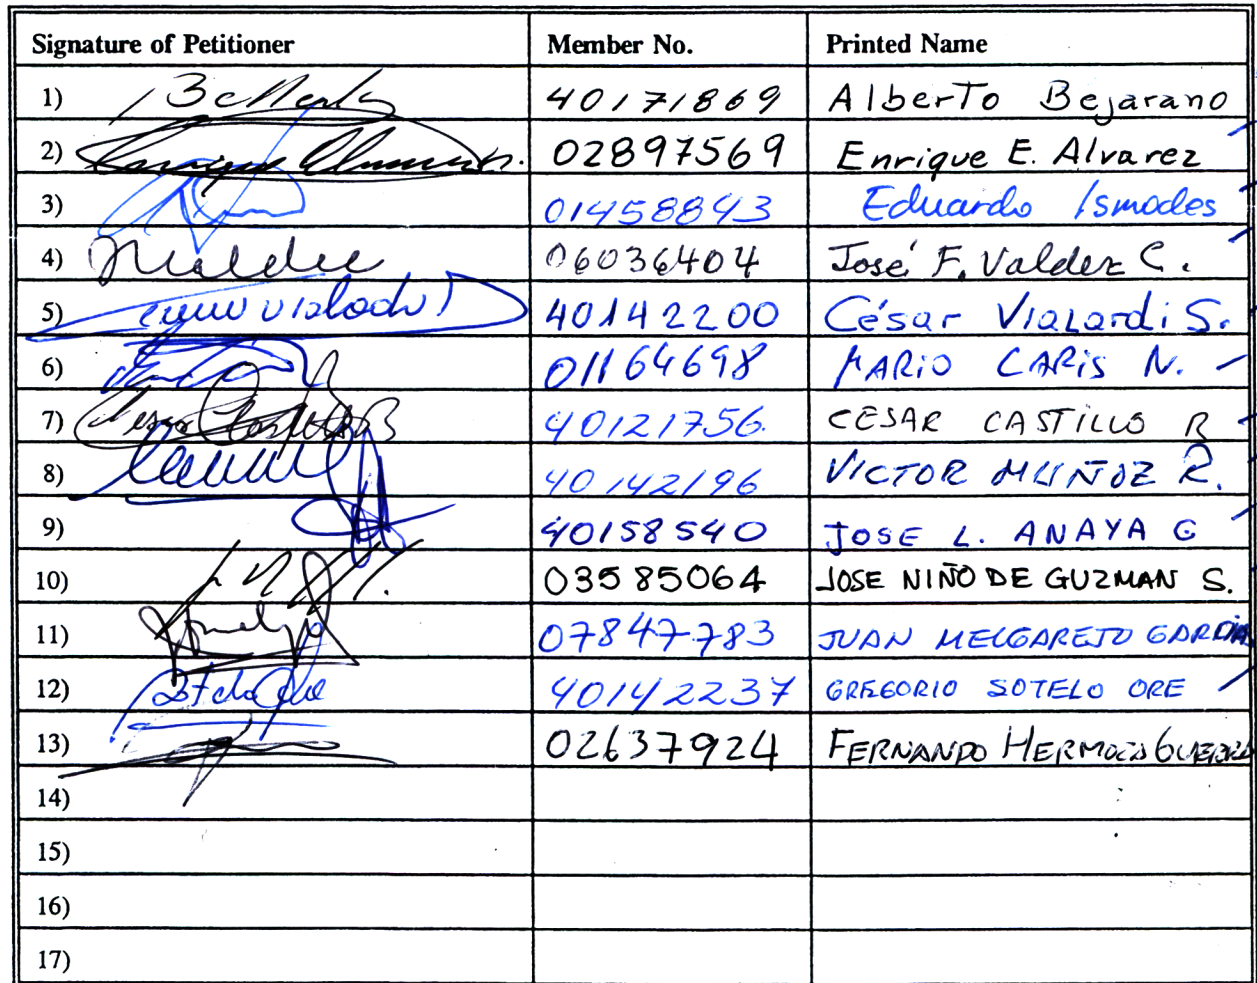 Signature of Petitioner Member No. Printed Name
1) 40171869 Alberto Bejarano
2) 02897569 Enrique E. Alvarez
3) 01458843 Eduardo Ismodes
4) 06036404 José F. Valdez C.
5) 40142200 César Vialardi S.
6) 01164698 MARIO CARIS N.
7) 40121756 CESAR CASTILLO R
8) 40142196 VICTOR MUÑOZ R.
9) 40158540 JOSE L. ANAYA G
10) 03585064 JOSE NIÑO DE GUZMAN S.
11) 07847783 JUAN MELGAREJO GARCIA
12) 40142237 GREGORIO SOTELO ORE
13) 02637924 FERNANDO HERMOZA GUERRA
14)
15)
16)
17)